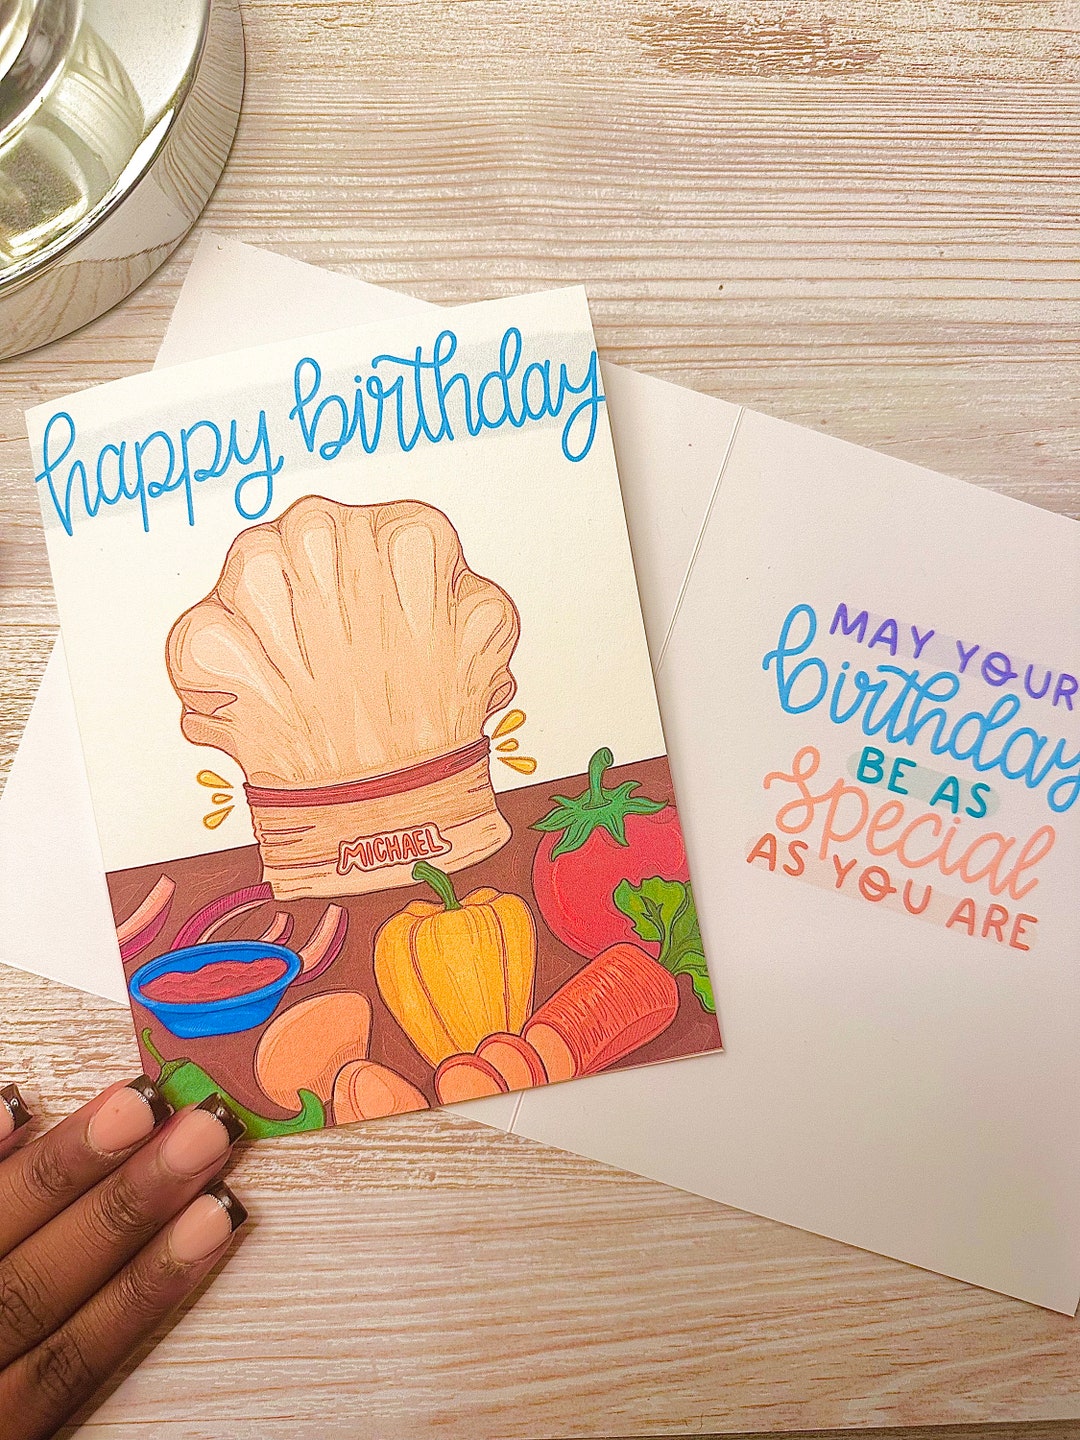 happy birthday
MICHAEL
MAY YOUR
birthday
BE AS
special
AS YOU ARE